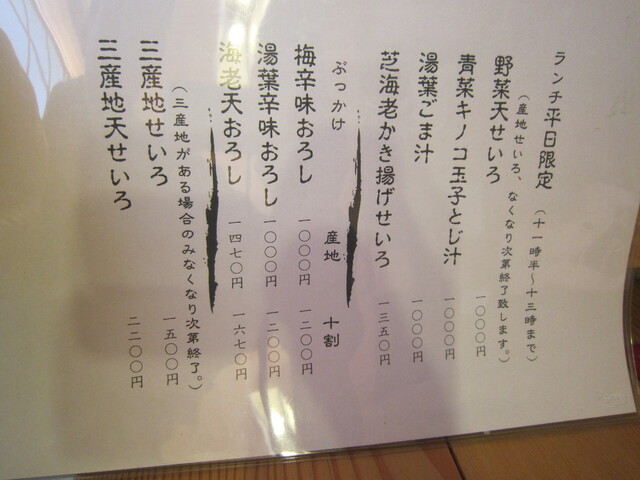 ランチ平日限定 (十一時半〜十三時まで)
野菜天せいろ 一〇〇〇円
(産地せいろ、なくなり次第終了致します。)
青菜キノコ玉子とじ汁 一〇〇〇円
湯葉ごま汁 一〇〇〇円
芝海老かき揚げせいろ 一三五〇円
ぶっかけ 産地 十割
梅辛味おろし 一〇〇〇円 一二〇〇円
湯葉辛味おろし 一〇〇〇円 一二〇〇円
海老天おろし 一四七〇円 一六七〇円
(三産地がある場合のみなくなり次第終了。)
三産地せいろ 一五〇〇円
三産地天せいろ 二二〇〇円